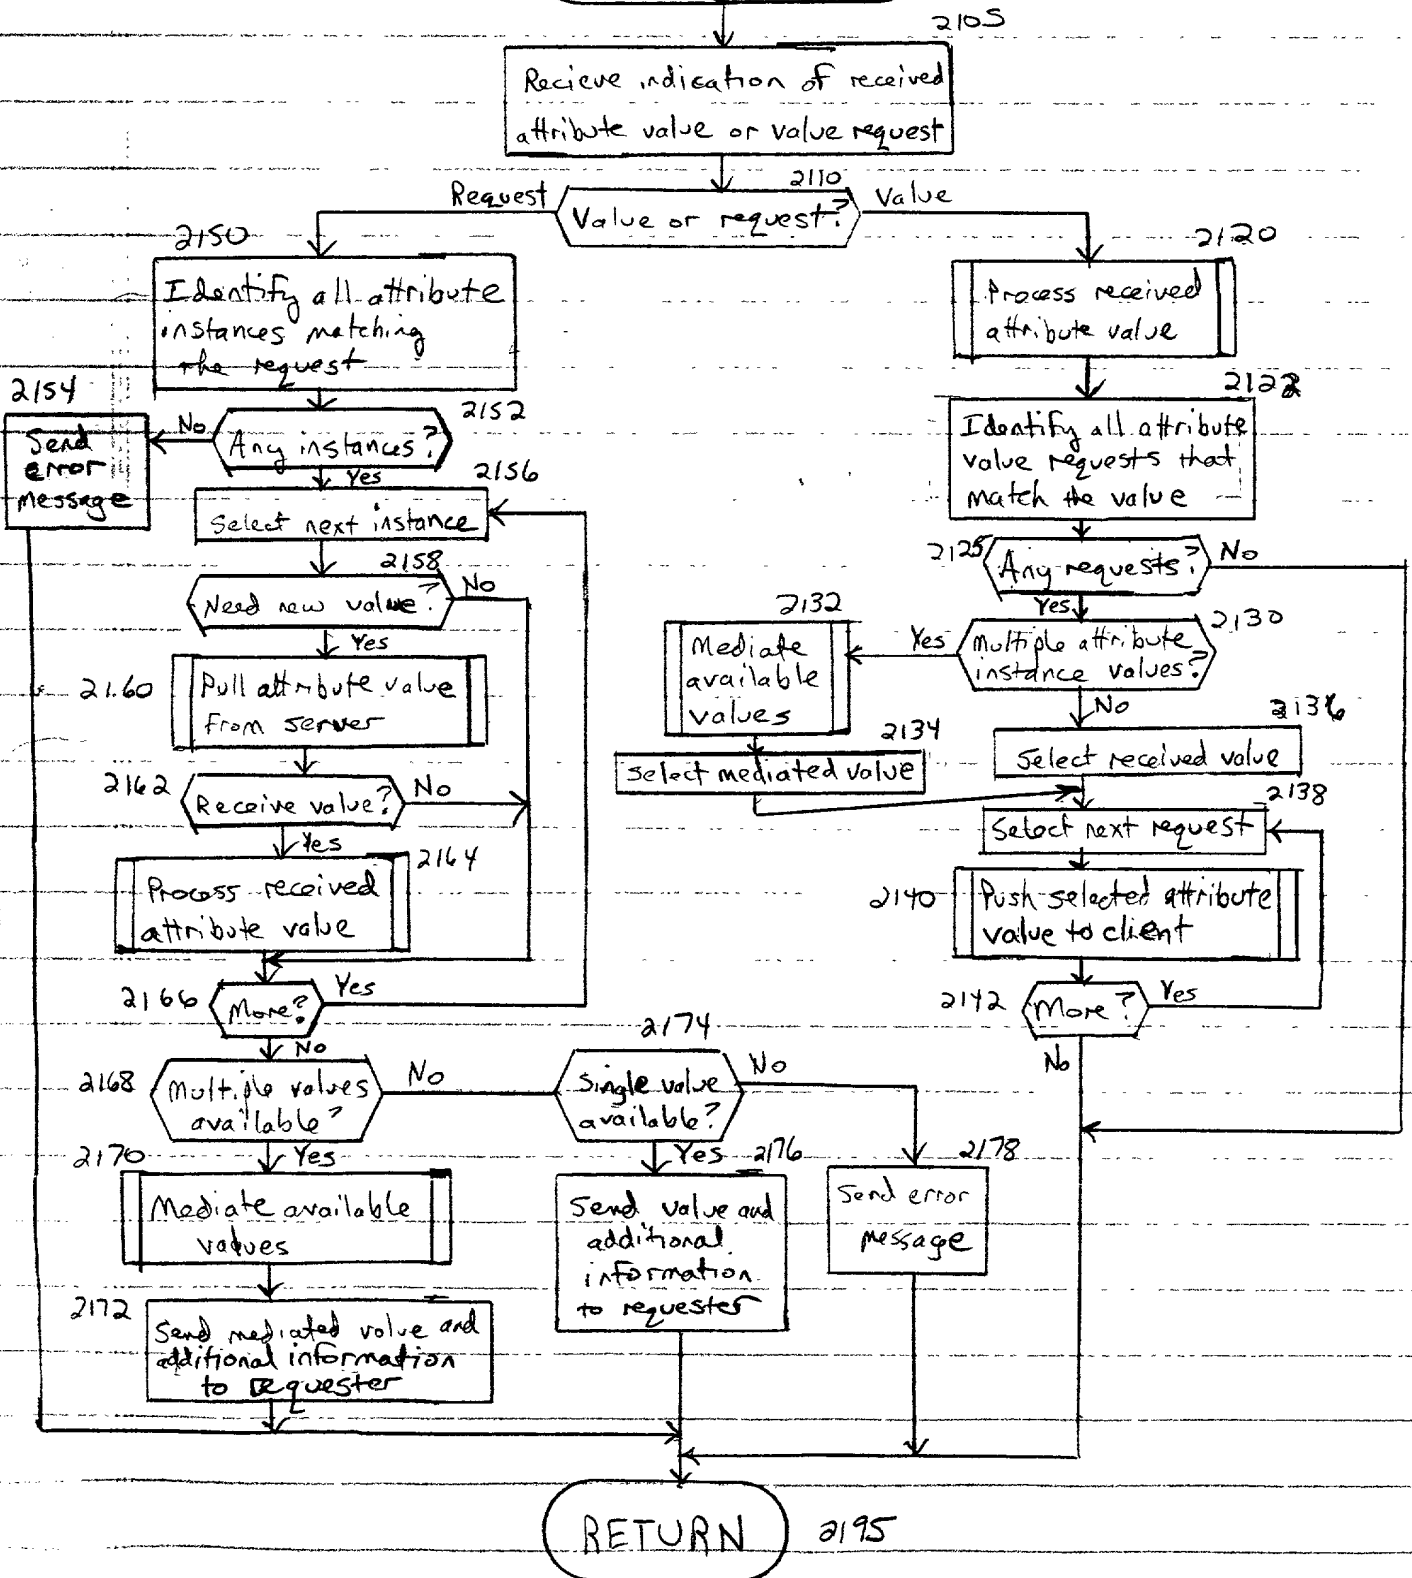 2105
Recieve indication of received
attribute value or value request
2110
Request
Value or request?
Value
2150
Identify all attribute
instances matching
the request
2154
Send
error
message
No
2152
Any instances?
Yes
2156
Select next instance
2158
Need new value?
No
Yes
2160
Pull attribute value
from server
2162
Receive value?
No
Yes
2164
Process received
attribute value
2166
More?
Yes
No
2168
Multiple values
available?
No
Yes
2170
Mediate available
values
2172
Send mediated value and
additional information
to requester
2174
Single value
available?
No
Yes
2176
Send value and
additional
information
to requester
2178
Send error
message
2120
Process received
attribute value
2122
Identify all attribute
value requests that
match the value
2125
Any requests?
No
Yes
2130
Multiple attribute
instance values?
Yes
No
2132
Mediate
available
values
2134
Select mediated value
2136
Select received value
2138
Select next request
2140
Push selected attribute
value to client
2142
More?
Yes
No
RETURN
2195